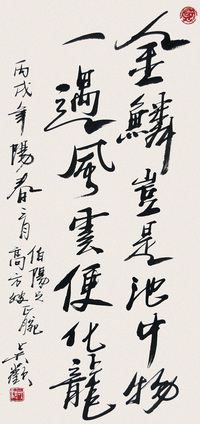 金鱗豈是池中物
一遇風雲便化龍
丙戌年陽春月
伯陽之
高方
吳歡